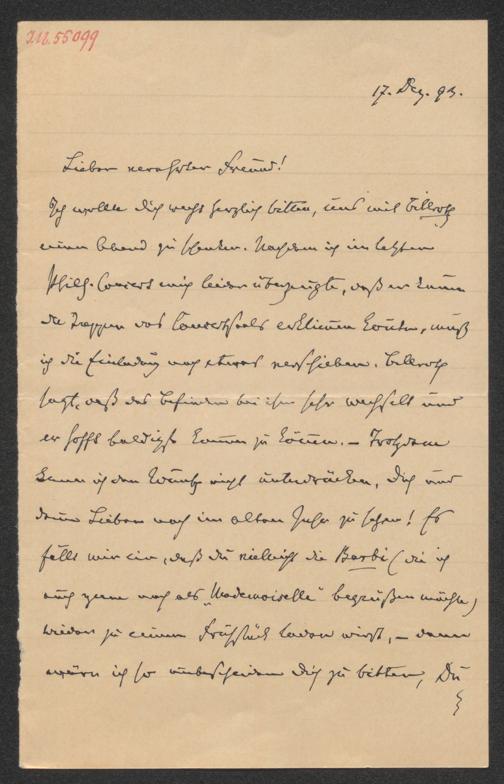 I.N. 55099
17. Dez. 93.
Lieber verehrter Freund!
Ich wollte Dich recht herzlich bitten, uns mit Billroth
einen Abend zu schenken. Nachdem ich im letzten
Philh. Concert mich leider überzeugte, daß er kaum
die Treppen des Concertsaals erklimmen konnte, muß
ich die Einladung noch etwas verschieben. Billroth
sagt, daß das Befinden bei ihm sehr wechselt und
er hofft baldigst kommen zu können. – Trotzdem
kann ich den Wunsch nicht unterdrücken, Dich und
deine Lieben noch im alten Jahr zu sehen! Es
fällt mir ein, daß du vielleicht die Barbi (die ich
auch gern noch als „Mademoiselle" begrüßen möchte)
wieder zu einem Frühstück laden wirst, – dann
wäre ich so unbescheiden Dich zu bitten, Du